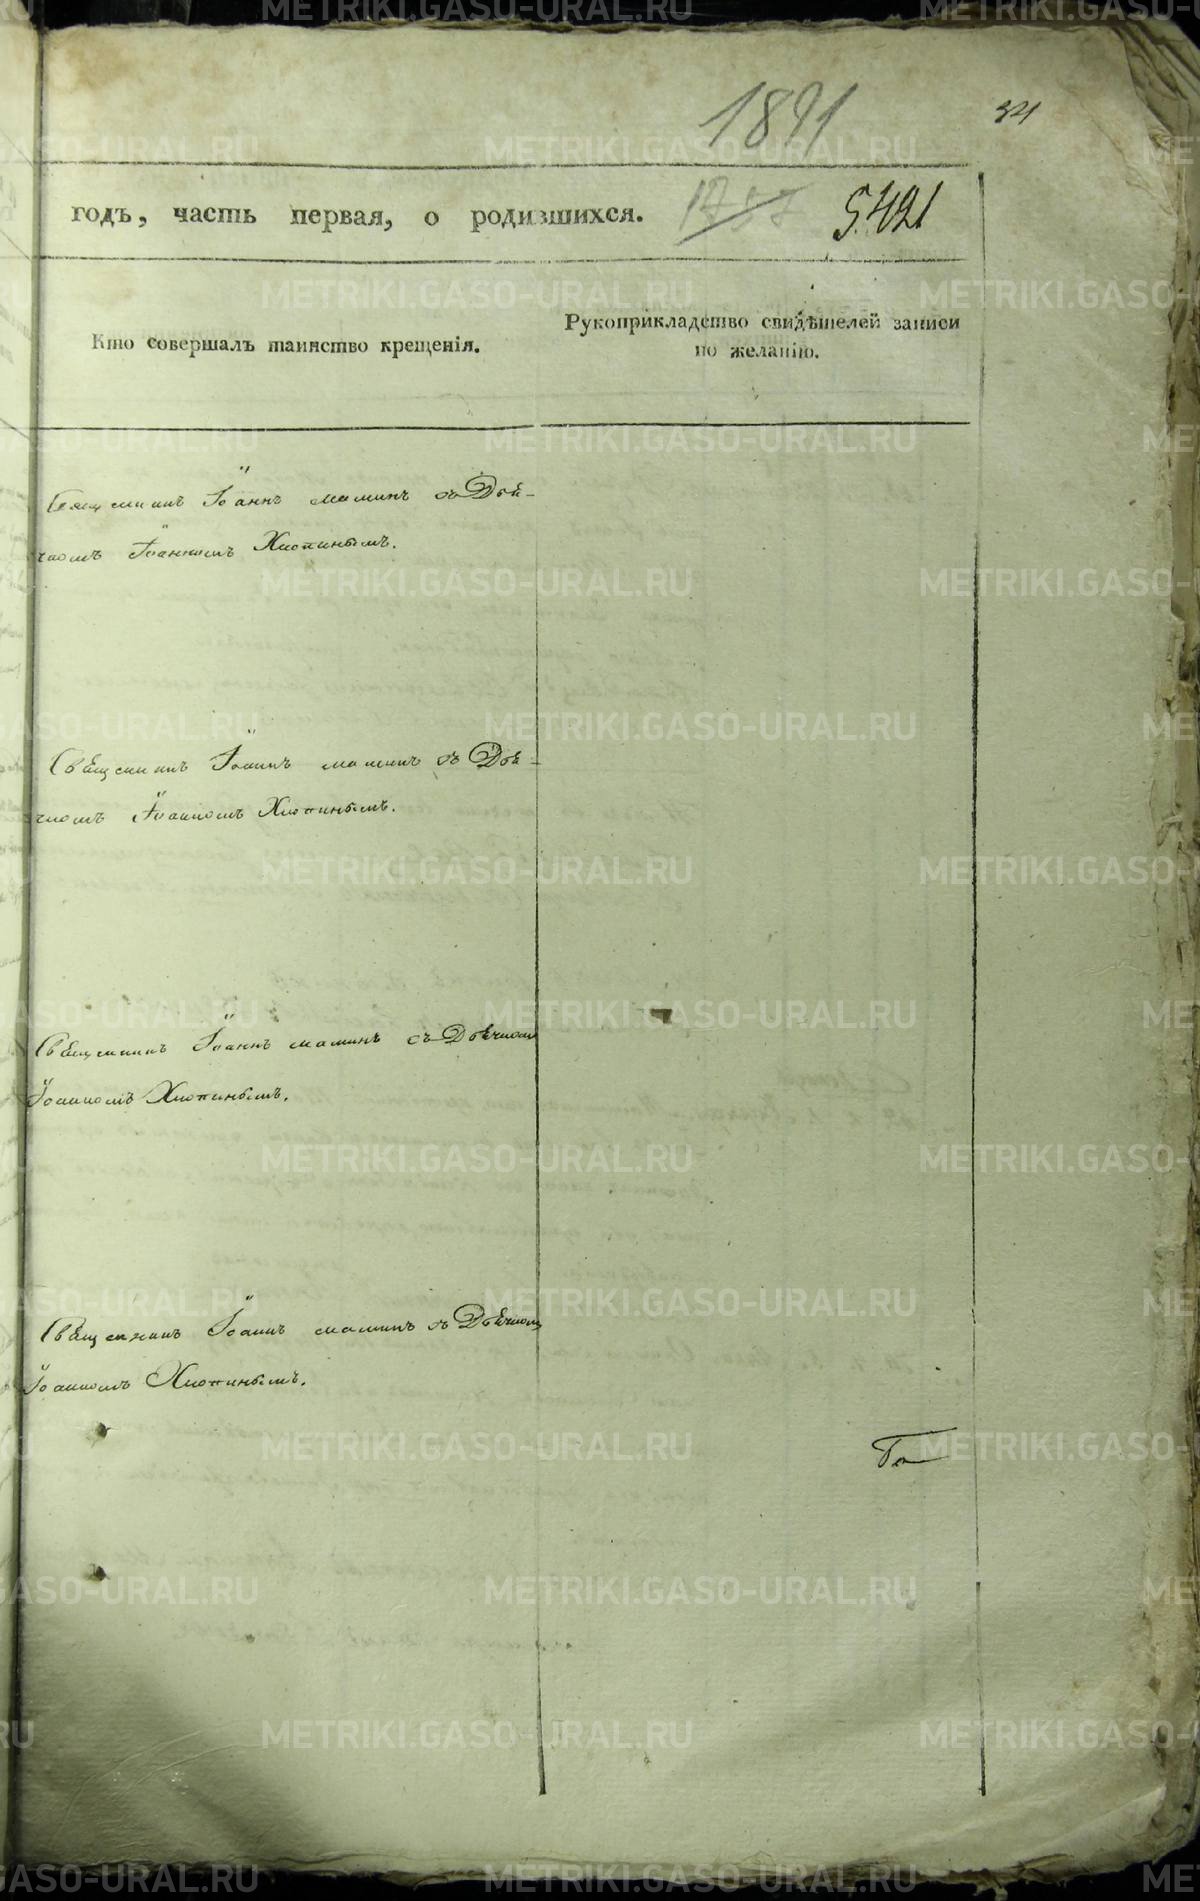 1891
34
годъ, часть первая, о родившихся.
5.421
Кто совершалъ таинство крещенія.
Рукоприкладство свидѣтелей записи
по желанію.
Священникъ Іоаннъ маминъ съ Дья-
чкомъ Іоанномъ Хлопинымъ.
Священникъ Іоаннъ маминъ съ Дья-
чкомъ Іоанномъ Хлопинымъ.
Священникъ Іоаннъ маминъ съ Дьячкомъ
Іоанномъ Хлопинымъ.
Священникъ Іоаннъ маминъ съ Дьячкомъ
Іоанномъ Хлопинымъ.
METRIKI.GASO-URAL.RU